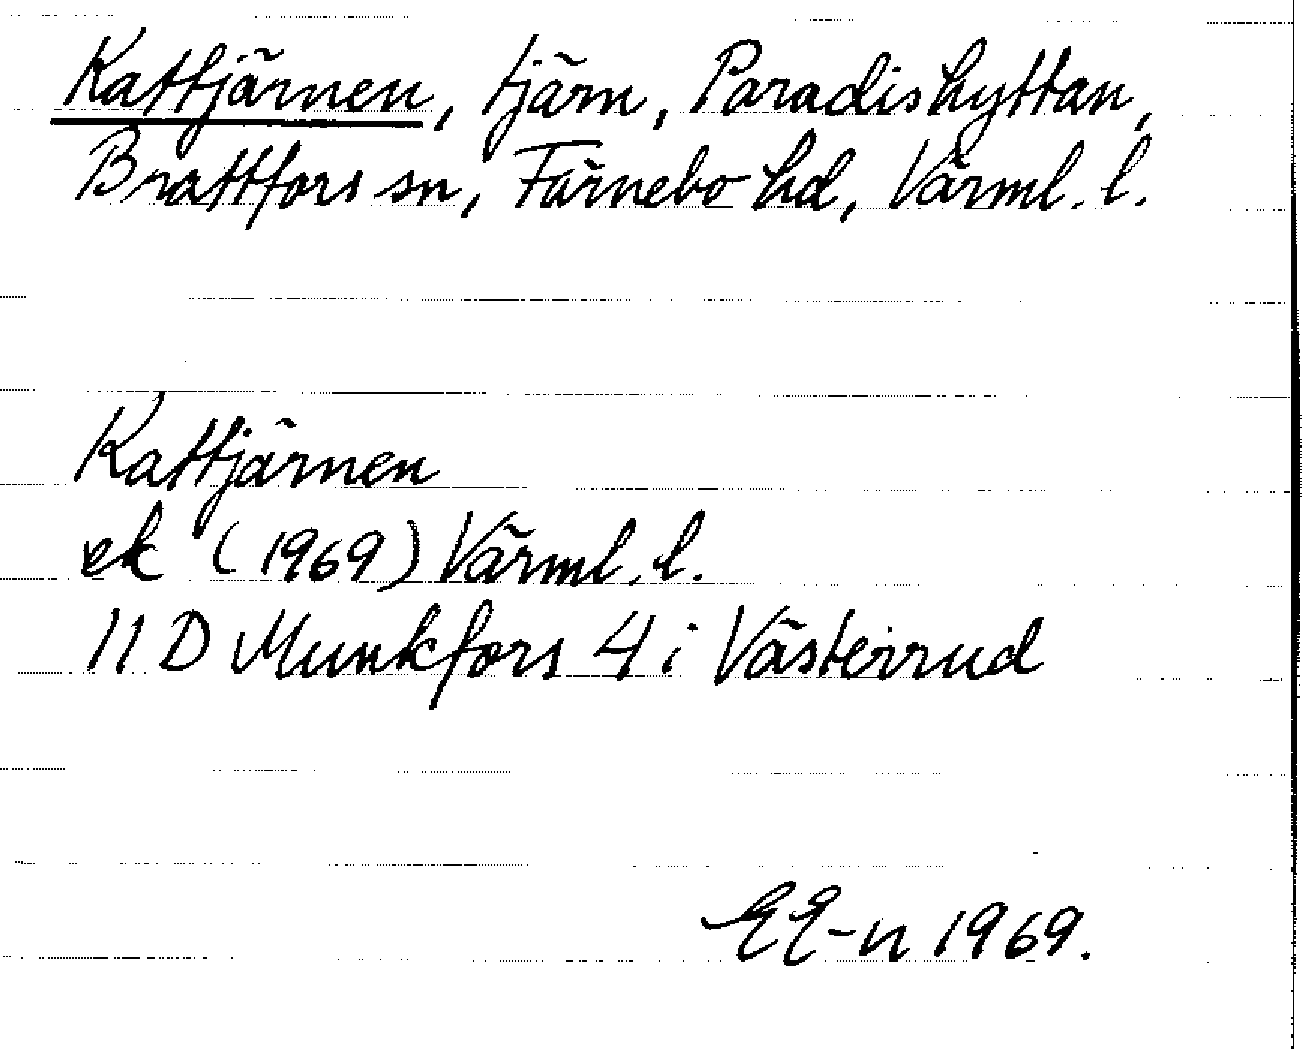 Kattjärnen, tjärn, Paradishyttan,
Brattfors sn, Färnebo hd, Värml. l.
Kattjärnen
ek (1969) Värml. l.
11 D Munkfors 4 i Västerrud
EE-n 1969.